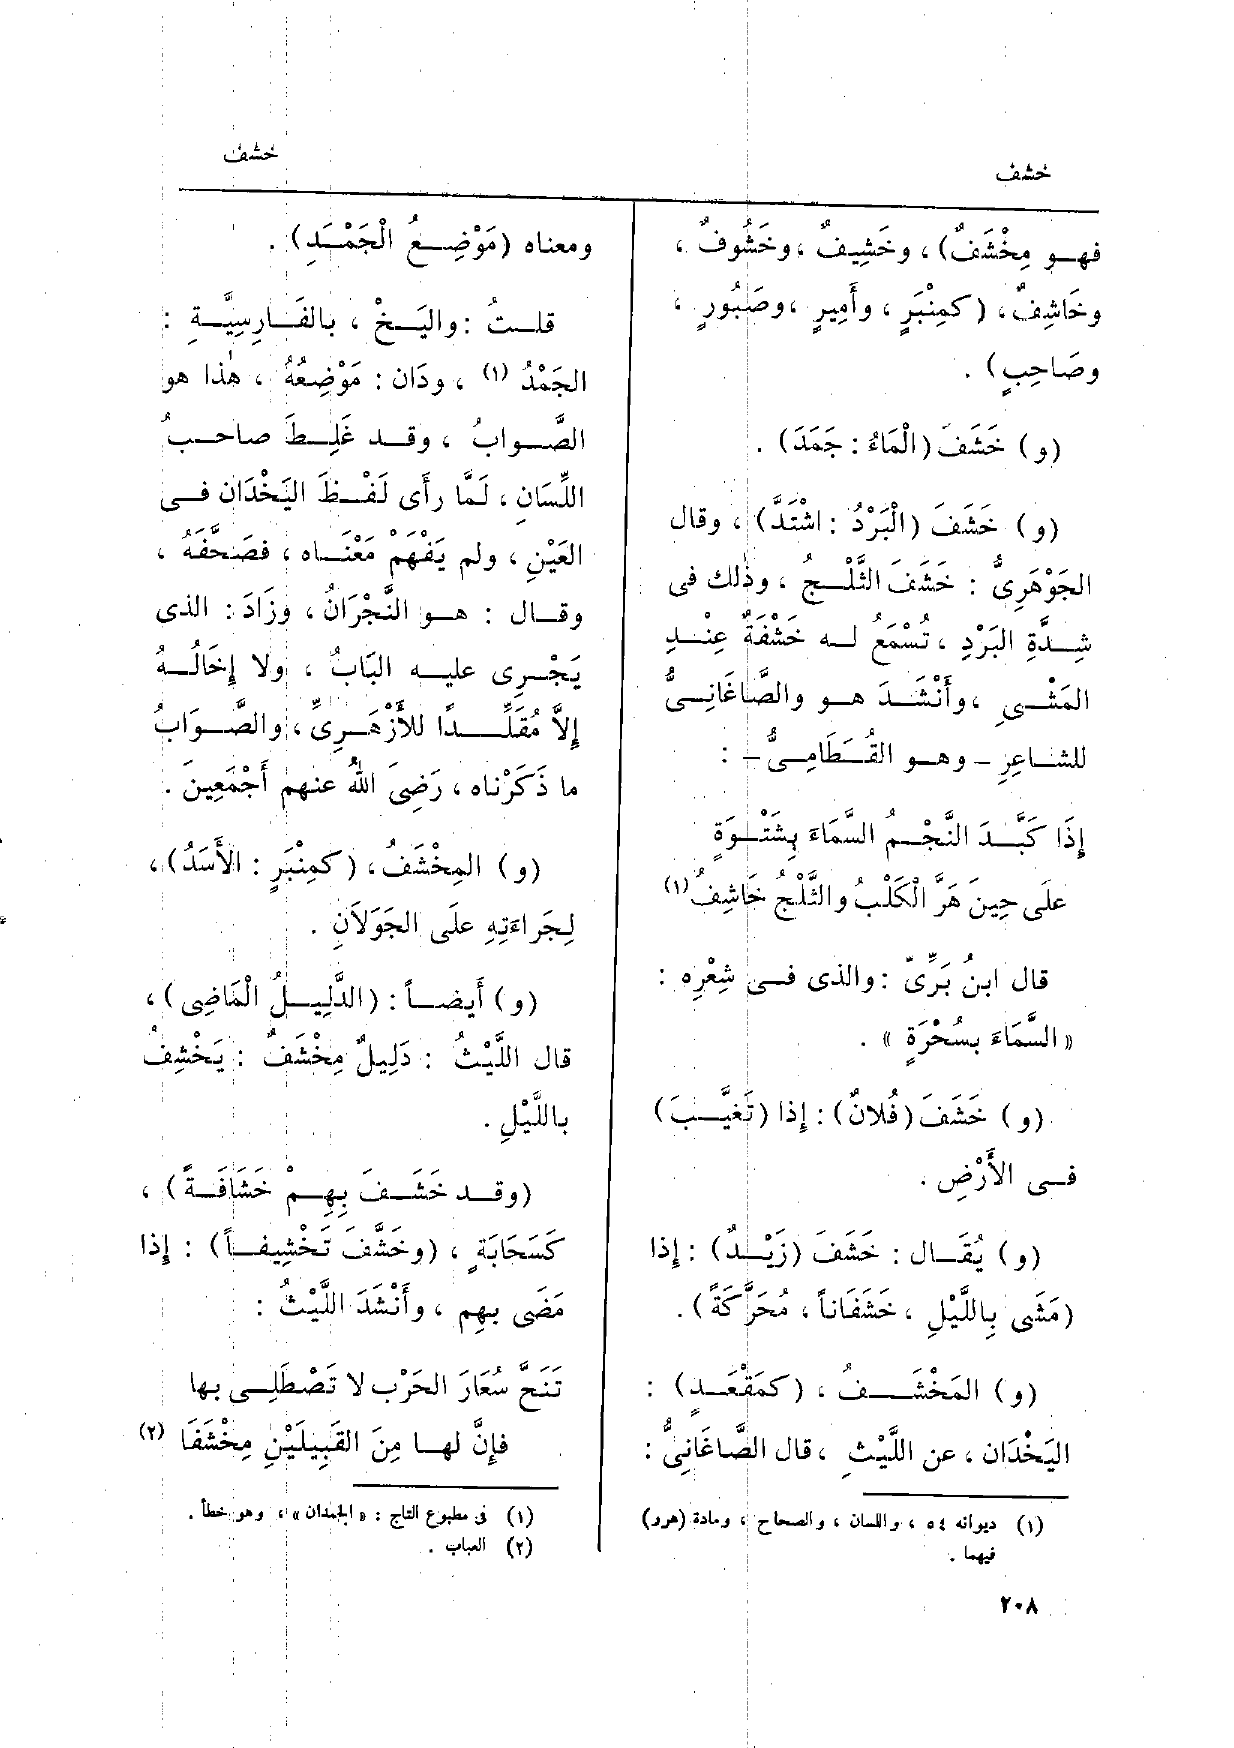 خشف
خشف
فهو مِخْشَفٌ) ، وخَشِيفٌ ، وخَشُوفٌ ،
وخَاشِفٌ ، (كمِنْبَرٍ ، وأَمِيرٍ ، وصَبُورٍ ،
وصَاحِبٍ) .
(و) خَشَفَ (الْمَاءُ : جَمَدَ) .
(و) خَشَفَ (الْبَرْدُ : اشْتَدَّ) ، وقال
الجَوْهَرِىُّ : خَشَفَ الثَّلْجُ ، وذٰلك فى
شِدَّةِ البَرْدِ ، تُسْمَعُ له خَشْفَةٌ عِنْدِ
المَشْىِ ، وأَنْشَدَ هو والصَّاغَانِىُّ
للشاعِرِ – وهو القُطَامِىُّ – :
إِذَا كَبَّدَ النَّجْمُ السَّمَاءَ بِشَتْوَةٍ
علَى حِينَ هَرَّ الْكَلْبُ والثَّلْجُ خَاشِفُ (١)
قال ابنُ بَرِّىّ : والذى فى شِعْرِه :
« السَّمَاءَ بسُحْرَةٍ » .
(و) خَشَفَ (فُلانٌ) : إِذا (تَغَيَّبَ)
فى الأَرْضِ .
(و) يُقَال : خَشَفَ (زَيْدٌ) : إِذا
(مَشَى بِاللَّيْلِ ، خَشَفَاناً ، مُحَرَّكَةً) .
(و) المَخْشَفُ ، (كمَقْعَدٍ) :
اليَخْدَان ، عن اللَّيْثِ ، قال الصَّاغَانِىُّ :
(١) ديوانه ٥٤ ، واللسان ، والصحاح ، ومادة (هرر)
فيهما .
ومعناه (مَوْضِعُ الْجَمْدِ) .
قلتُ : واليَخْ ، بالفَارِسِيَّةِ :
الجَمْدُ (١) ، ودَان : مَوْضِعُهُ ، هٰذا هو
الصَّوابُ ، وقد غَلِطَ صاحبُ
اللِّسَانِ ، لَمَّا رأَى لَفْظَ اليَخْدَان فى
العَيْنِ ، ولم يَفْهَمْ مَعْنَاه ، فصَحَّفَهُ ،
وقال : هو النَّجْرَانُ ، وزَادَ : الذى
يَجْرِى عليه البَابُ ، ولا إِخَالُهُ
إِلاَّ مُقَلِّدًا للأَزْهَرِىِّ ، والصَّوَابُ
ما ذَكَرْناه ، رَضِىَ اللهُ عنهم أَجْمَعِينَ .
(و) المِخْشَفُ ، (كمِنْبَرٍ : الأَسَدُ) ،
لِجَراءَتِهِ علَى الجَوَلَانِ .
(و) أَيضاً : (الدَّلِيلُ الْمَاضِى) ،
قال اللَّيْثُ : دَلِيلٌ مِخْشَفٌ : يَخْشِفُ
باللَّيْلِ .
(وقد خَشَفَ بِهِمْ خَشَافَةً) ،
كسَحَابَةٍ ، (وخَشَّفَ تَخْشِيفاً) : إِذا
مَضَى بهِم ، وأَنْشَدَ اللَّيْثُ :
تَنَحَّ سُعَارَ الحَرْبِ لا تَصْطَلِى بها
فإِنَّ لها مِنَ القَبِيلَيْنِ مِخْشَفَا (٢)
(١) فى مطبوع التاج : « الجمدان » ، وهو خطأ .
(٢) العباب .
٢٠٨